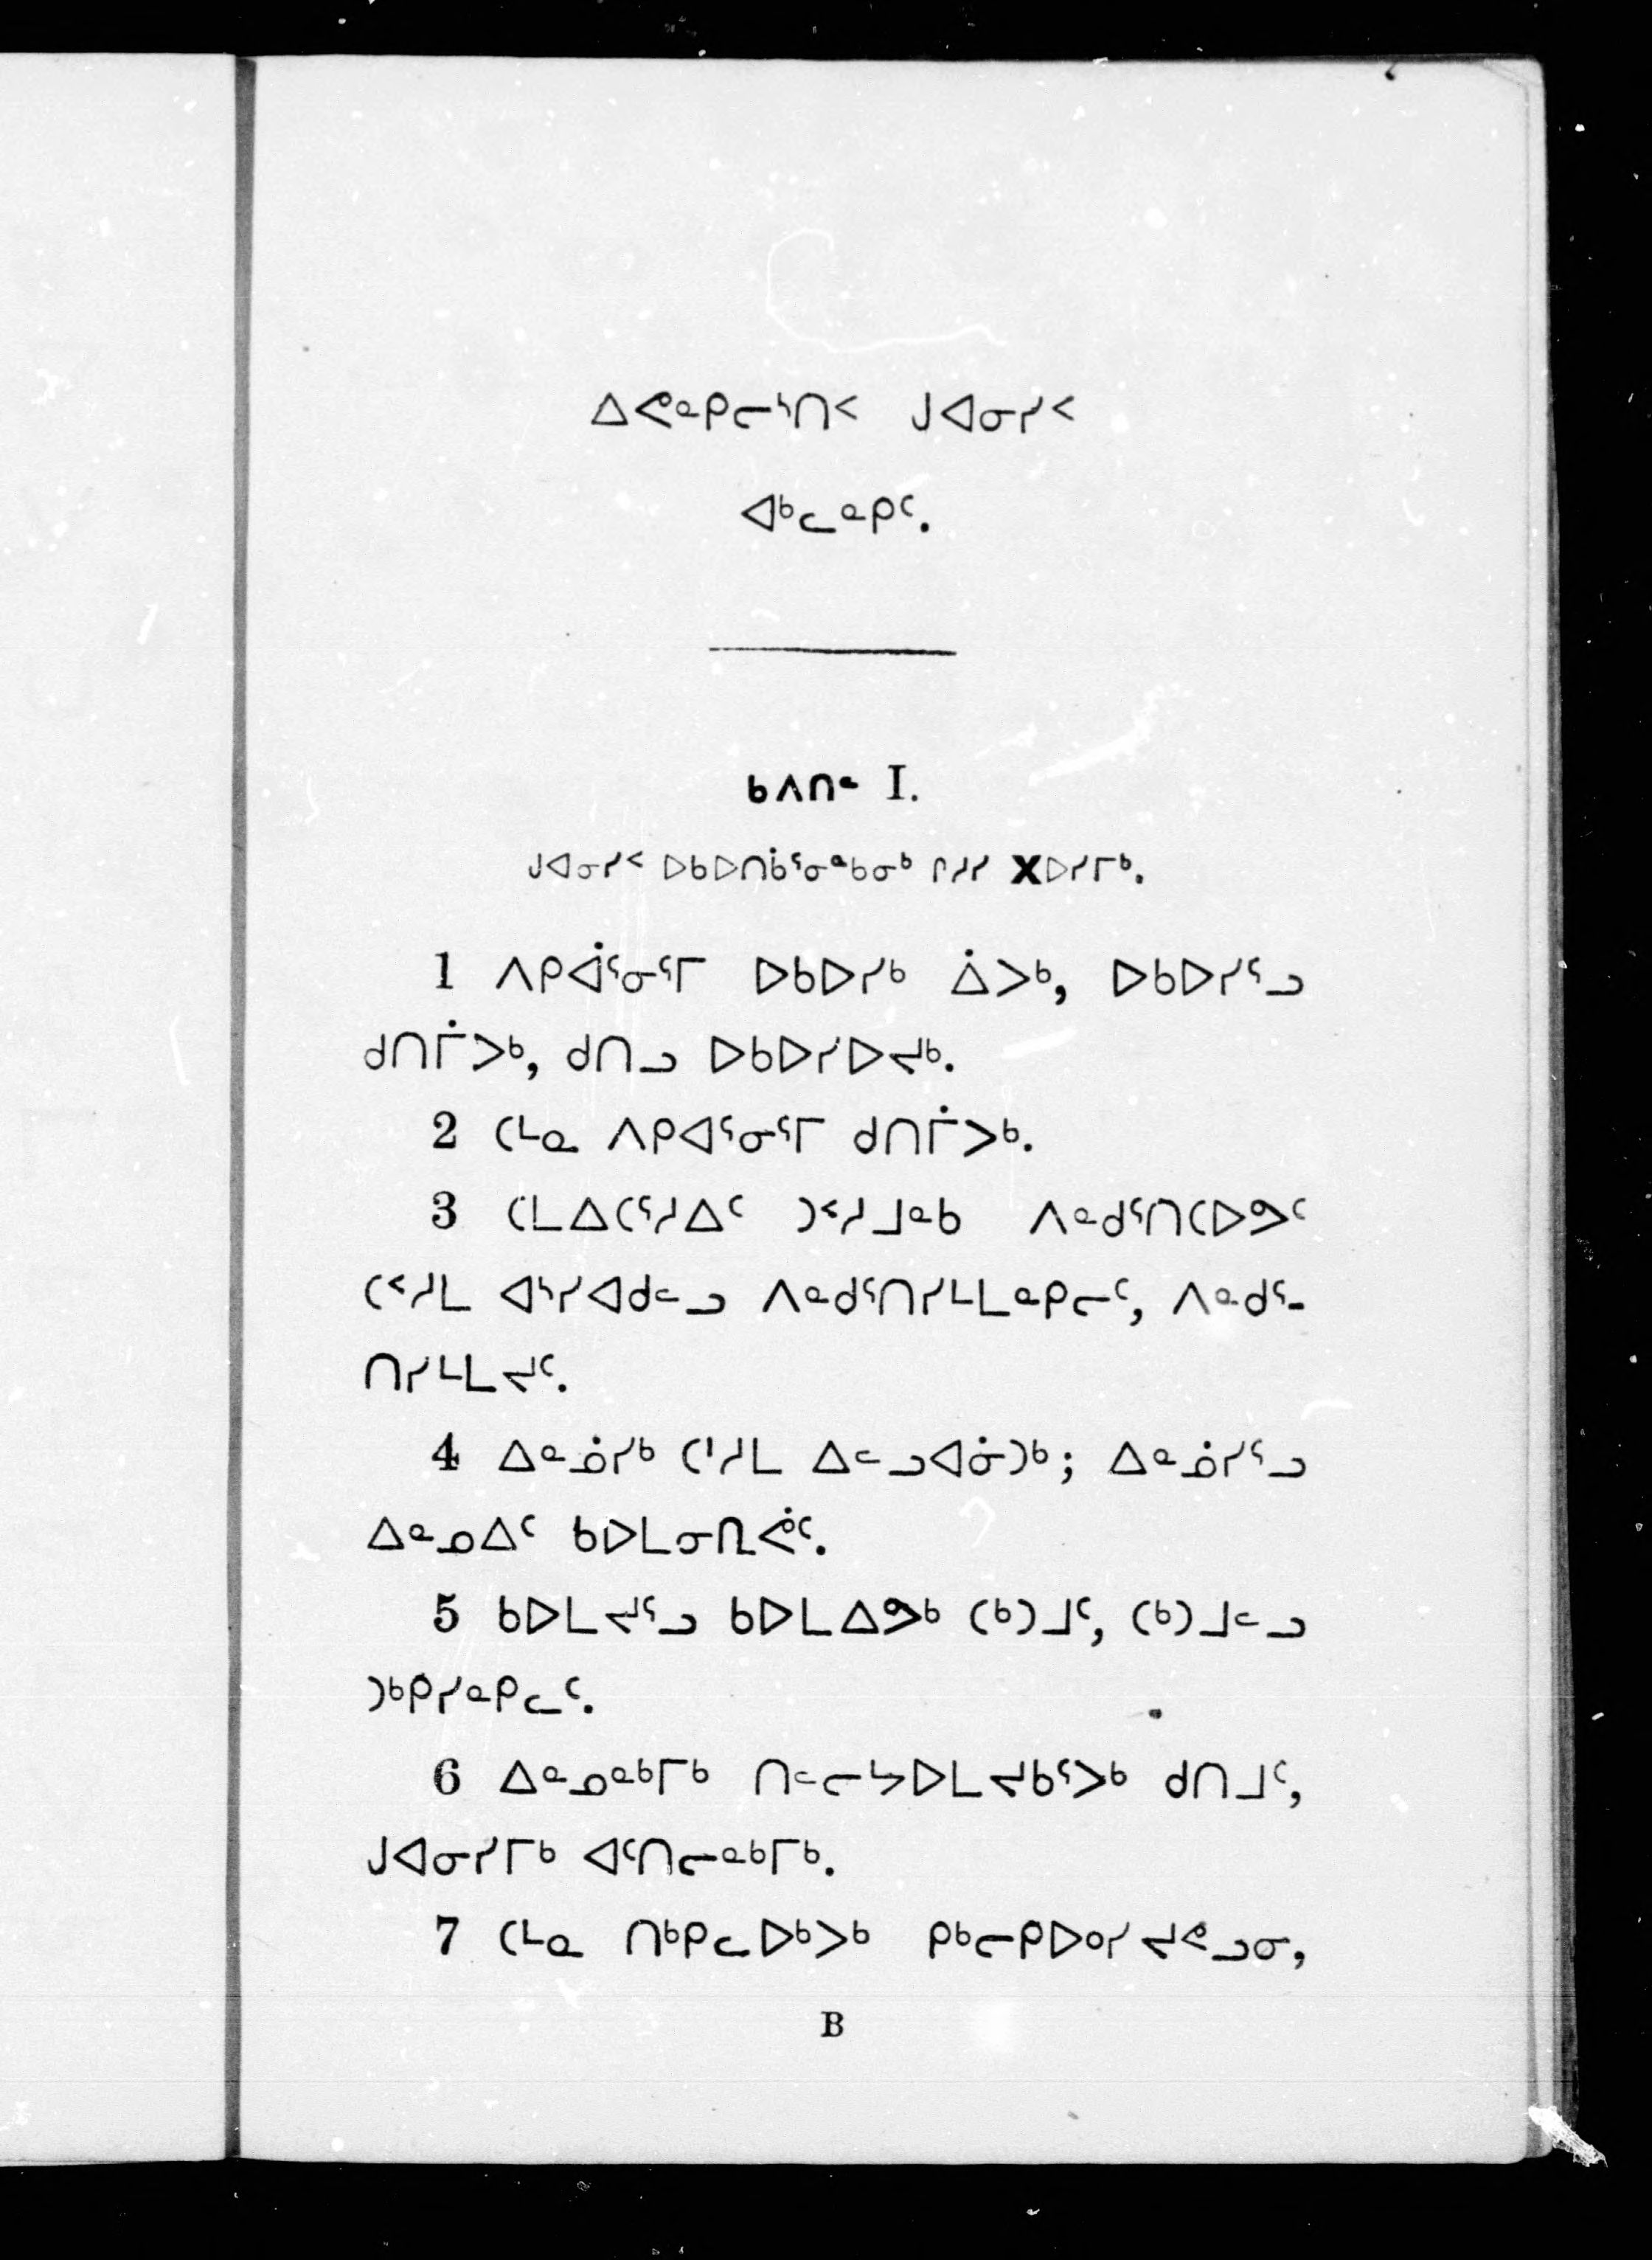 ᐃᕙᓐᑭᓕᔅᑎᑉ ᒍᐊᓂᓯᑉ
ᐊᒃᓚᓐᑭᑦ.
ᑲᐱᑎᓪ I.
ᒍᐊᓂᓯᑉ ᐅᑲᐅᑎᑳᕐᓂᖕᑲᓂᒃ ᒋᓱᓯ Xᐅᓯᒥᒃ.
1 ᐱᑭᐋᕐᓂᕐᒥ ᐅᑲᐅᓯᒃ ᐄᐳᒃ, ᐅᑲᐅᓯᕐᓗ
ᑯᑎᒦᐳᒃ, ᑯᑎᓗ ᐅᑲᐅᓯᐅᔪᒃ.
2 ᑕᒻᓇ ᐱᑭᐊᕐᓂᕐᒥ ᑯᑎᒦᐳᒃ.
3 ᑕᒪᐃᑕᕐᓱᐃᑦ ᑐᑉᓱᒧᓐᑲ ᐱᓐᑯᕐᑎᑕᐅᕗᑦ
ᑕᑉᓱᒪ ᐊᔅᓯᐊᑯᓪᓗ ᐱᓐᑯᕐᑎᓯᒻᒪᓐᑭᓕᑦ, ᐱᓐᑯᕐ-
ᑎᓯᒻᒪᔪᑦ.
4 ᐃᓐᓅᓯᒃ ᑕᑉᓱᒪ ᐃᓪᓗᐊᓃᑐᒃ; ᐃᓐᓅᓯᕐᓗ
ᐃᓐᓄᐃᑦ ᑲᐅᒪᓂᕆᕚᑦ.
5 ᑲᐅᒪᔪᕐᓗ ᑲᐅᒪᐃᕗᒃ ᑕᒃᑐᒧᑦ, ᑕᒃᑐᒧᓪᓗ
ᑐᒃᑭᓯᓐᑭᓚᑦ.
6 ᐃᓐᓄᓐᒃᒥᒃ ᑎᓪᓕᔭᐅᒪᔪᑲᕐᐳᒃ ᑯᑎᒧᑦ,
ᒍᐊᓂᓯᒥᒃ ᐊᑦᑎᓕᓐᒃᒥᒃ.
7 ᑕᒻᓇ ᑎᒃᑭᓚᐅᒃᐳᒃ ᑭᒃᓕᑭᐅᐤᓯᔪᕙᓗᓂ,
B